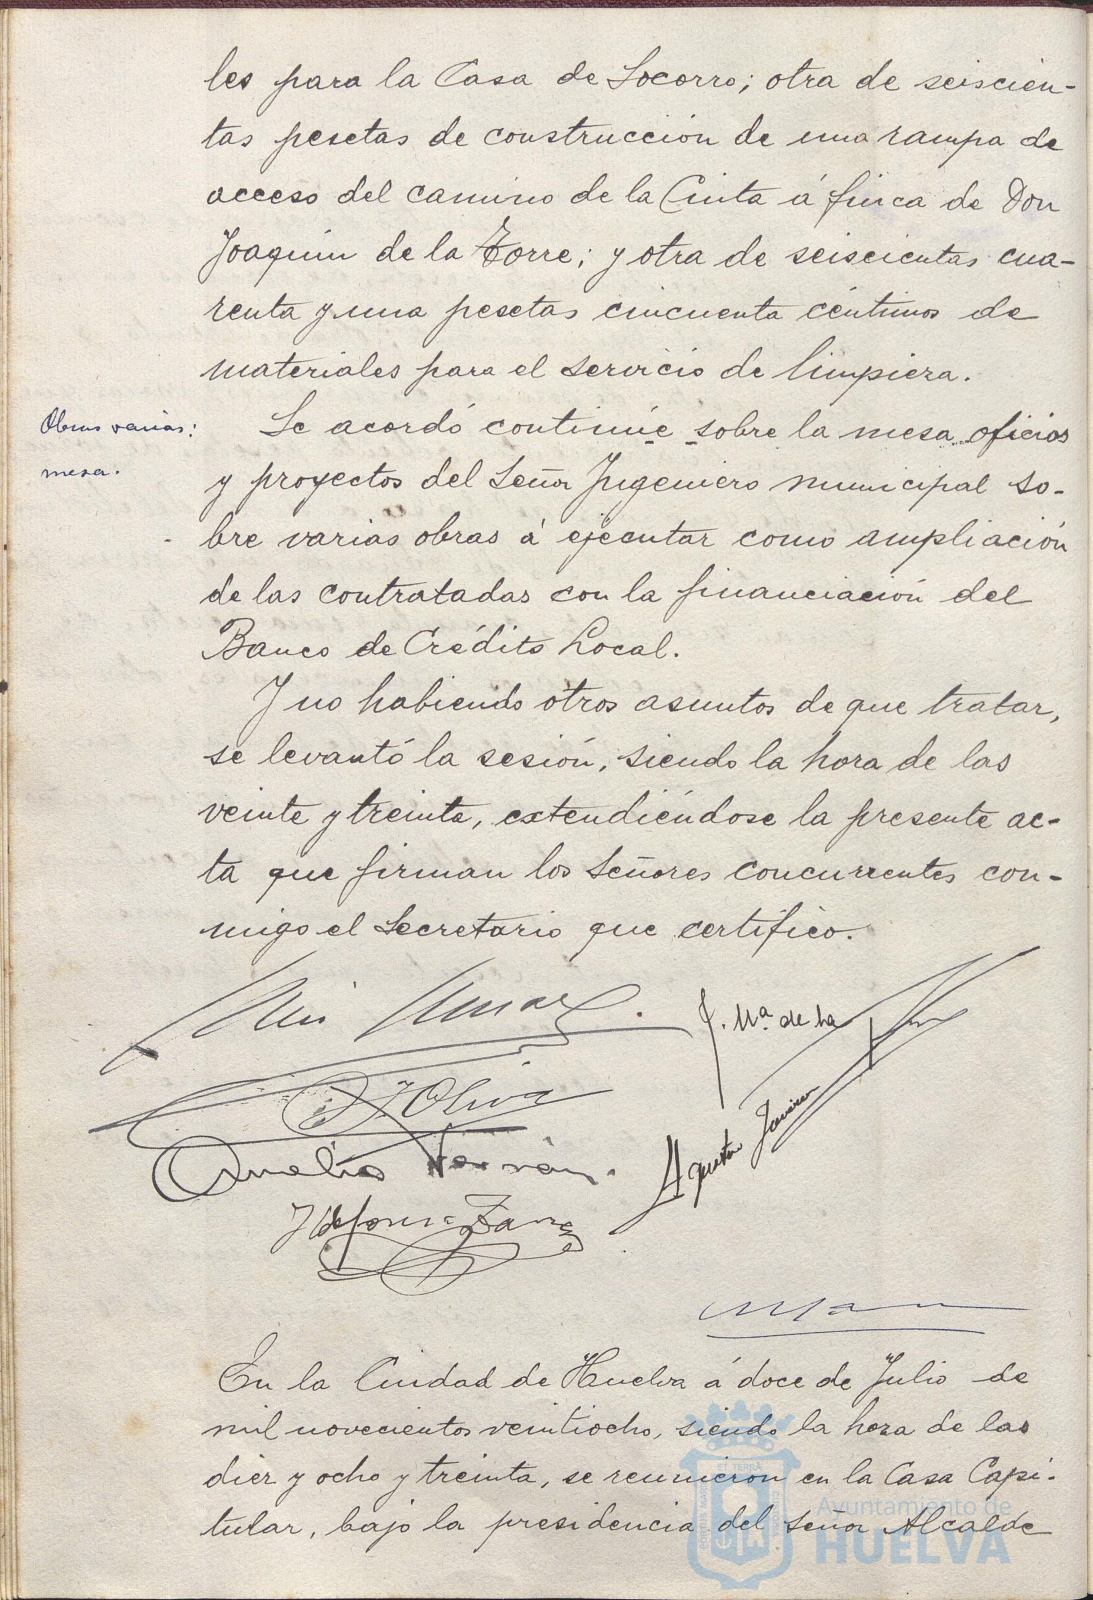 les para la Casa de Socorro; otra de seiscien-
tas pesetas de construcción de una rampa de
acceso del camino de la Cinta á finca de Don
Joaquín de la Torre; y otra de seiscientas cua-
renta y una pesetas cincuenta céntimos de
materiales para el servicio de limpieza.
Obras varias:
mesa.
Se acordó continúe sobre la mesa oficios
y proyectos del Señor Ingeniero municipal so-
bre varias obras á ejecutar como ampliación
de las contratadas con la financiación del
Banco de Crédito Local.
Y no habiendo otros asuntos de que tratar,
se levantó la sesión, siendo la hora de las
veinte y treinta, extendiéndose la presente ac-
ta que firman los Señores concurrentes con-
migo el Secretario que certifico.
J. Mª. de la
Oliva
Aurelio
Agustín
Ildefonso
En la Ciudad de Huelva á doce de Julio de
mil novecientos veintiocho, siendo la hora de las
diez y ocho y treinta, se reunieron en la Casa Capi-
tular, bajo la presidencia del Señor Alcalde
Ayuntamiento de
HUELVA